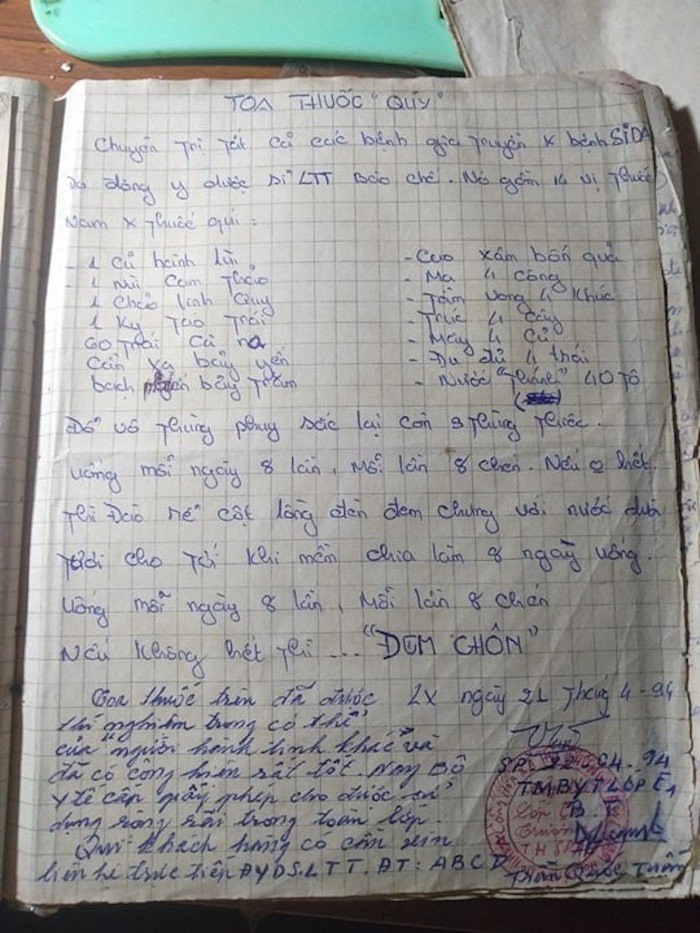 TOA THUỐC "QUÝ"
Chuyên trị tất cả các bệnh gia truyền x bệnh SIDA
Do đông y dược sĩ LTT Bào chế. Nó gồm 14 vị Thuốc
Nam x Thuốc quí:
- 1 củ hành lùi
- 1 nùi cam thảo
1 chảo linh quy
1 ky Táo Trái
60 Trái Cà na
Cân xà bảy yến
bạch bảy Trăm
- Cao xâm bốn quả
- Ma 4 công
- Tầm vong 4 khúc
- Trúc 4 cây
- Mây 4 củ
- Đu đủ 4 trái
- Nước "Thánh" 40 Tô
Đổ vô Thùng phuy sắc lại còn 3 Thùng Thiếc.
Uống mỗi ngày 8 lần, Mỗi lần 8 chén. Nếu 0 hết
Thì Đào rể cột lồng đèn đem chưng với nước dừa
Tươi cho Tới khi mềm chia làm 8 ngày uống.
Uống mỗi ngày 8 lần, Mỗi lần 8 chén
Nếu Không hết thì ... "ĐEM CHÔN"
Toa thuốc trên đã được
thí nghiệm trong cơ thể
của "người hành tinh khác" và
đã có công hiến rất tốt. Nay Bộ
y tế cấp giấy phép cho được sử
dụng rộng rãi trong toàn lớp.
Quí khách hàng có cần xin
liên hệ trực tiếp ĐYDS.LTT. ĐT: ABCD
LX ngày 21 Tháng 4-94
SP: 22-04-94
TM BYT LỚP E1
Trần Quốc Tuấn